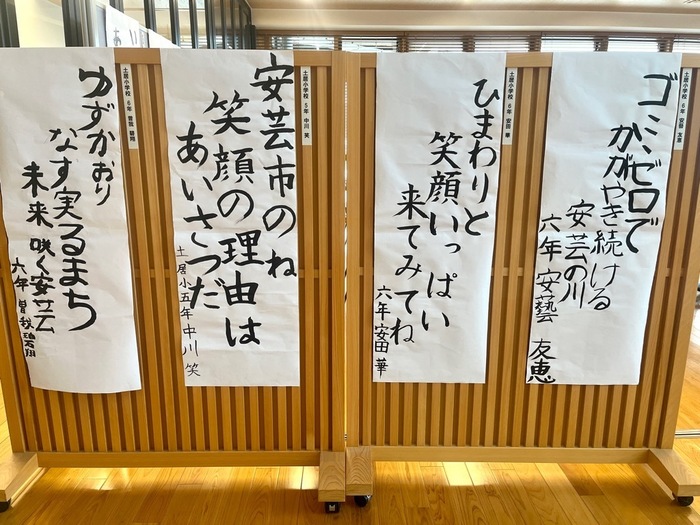 ゴミゼロで
かがやき続ける
安芸の川
六年 安藝 友恵
土居小学校 6年 安藝 友恵
ひまわりと
笑顔いっぱい
来てみてね
六年 安田 華
土居小学校 6年 安田 華
安芸市のね
笑顔の理由は
あいさつだ
土居小五年 中川 笑
土居小学校 5年 中川 笑
ゆずかおり
なす実るまち
未来咲く安芸
六年 曽我
土居小学校 6年 曽我